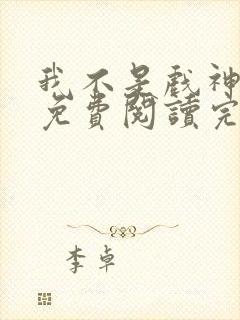 我不是戲神
免費閱讀完
李卓